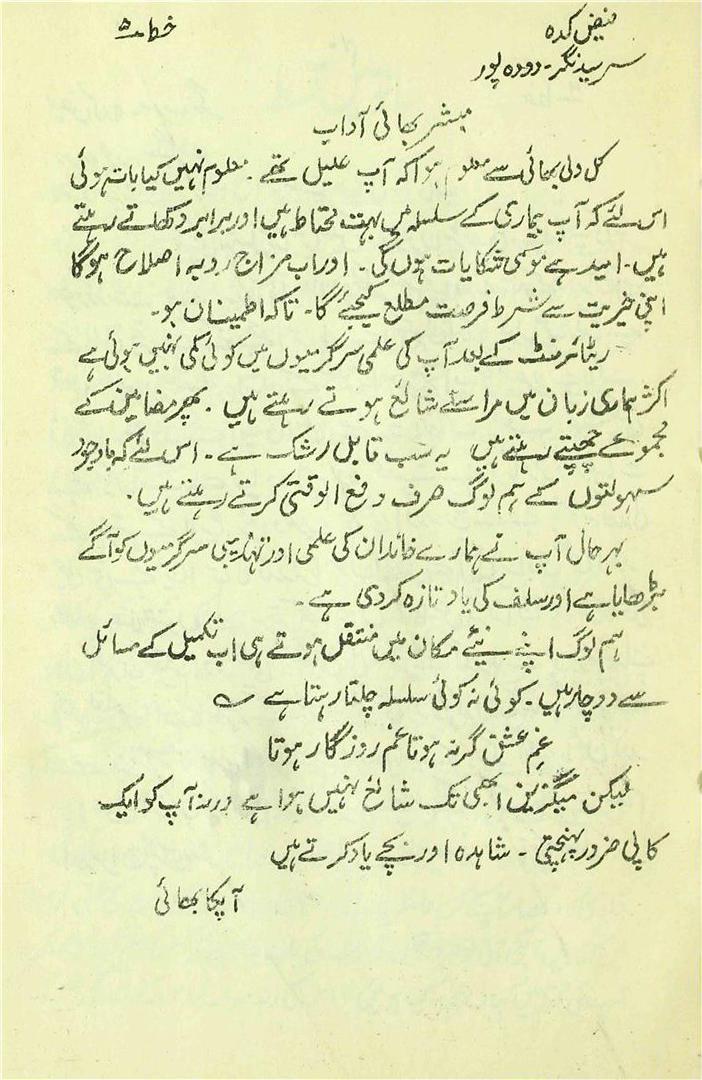 فیض کدہ
خط ۵
سرسید نگر۔ دودہ پور
مبشر بھائی آداب
کل ولی بھائی سے معلوم ہوا کہ آپ علیل تھے۔ معلوم نہیں کیا بات ہوئی
اس لئے کہ آپ بیماری کے سلسلہ میں بہت محتاط ہیں اور برابر دکھلاتے رہتے
ہیں۔ امید ہے موسمی شکایات ہوں گی۔ اور اب مزاج روبہ اصلاح ہوگا
اپنی خیریت سے شرط فرصت مطلع کیجئے گا۔ تاکہ اطمینان ہو۔
ریٹائرمنٹ کے بعد آپ کی علمی سرگرمیوں میں کوئی کمی نہیں ہوئی ہے
اکثر ہماری زبان میں مراسلے شائع ہوتے رہتے ہیں۔ پھر مضامین کے
مجموعے چھپتے رہتے ہیں یہ سب قابل رشک ہے۔ اس لئے کہ باوجود
سہولتوں کے ہم لوگ صرف دفع الوقتی کرتے رہتے ہیں۔
بہرحال آپ نے ہمارے خاندان کی علمی اور تہذیبی سرگرمیوں کو آگے
بڑھایا ہے اور سلف کی یاد تازہ کردی ہے۔
ہم لوگ اپنے نئے مکان میں منتقل ہوتے ہی اب تکمیل کے مسائل
سے دوچار ہیں۔ کوئی نہ کوئی سلسلہ چلتا رہتا ہے ؎
غمِ عشق گر نہ ہوتا غم روزگار ہوتا
لیکن میگزین ابھی تک شائع نہیں ہوا ہے ورنہ آپ کو ایک
کاپی ضرور پہنچتی۔ شاہدہ اور بچے یاد کرتے ہیں
آپکا بھائی